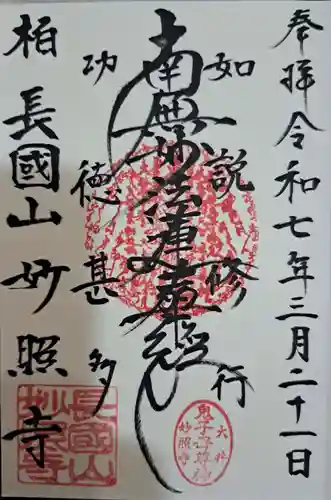 奉拝 令和七年三月二十一日
如説修行
南無妙法蓮華経
功徳甚多
柏 長國山 妙照寺
長國山
妙照寺
鬼子母尊神
妙照寺